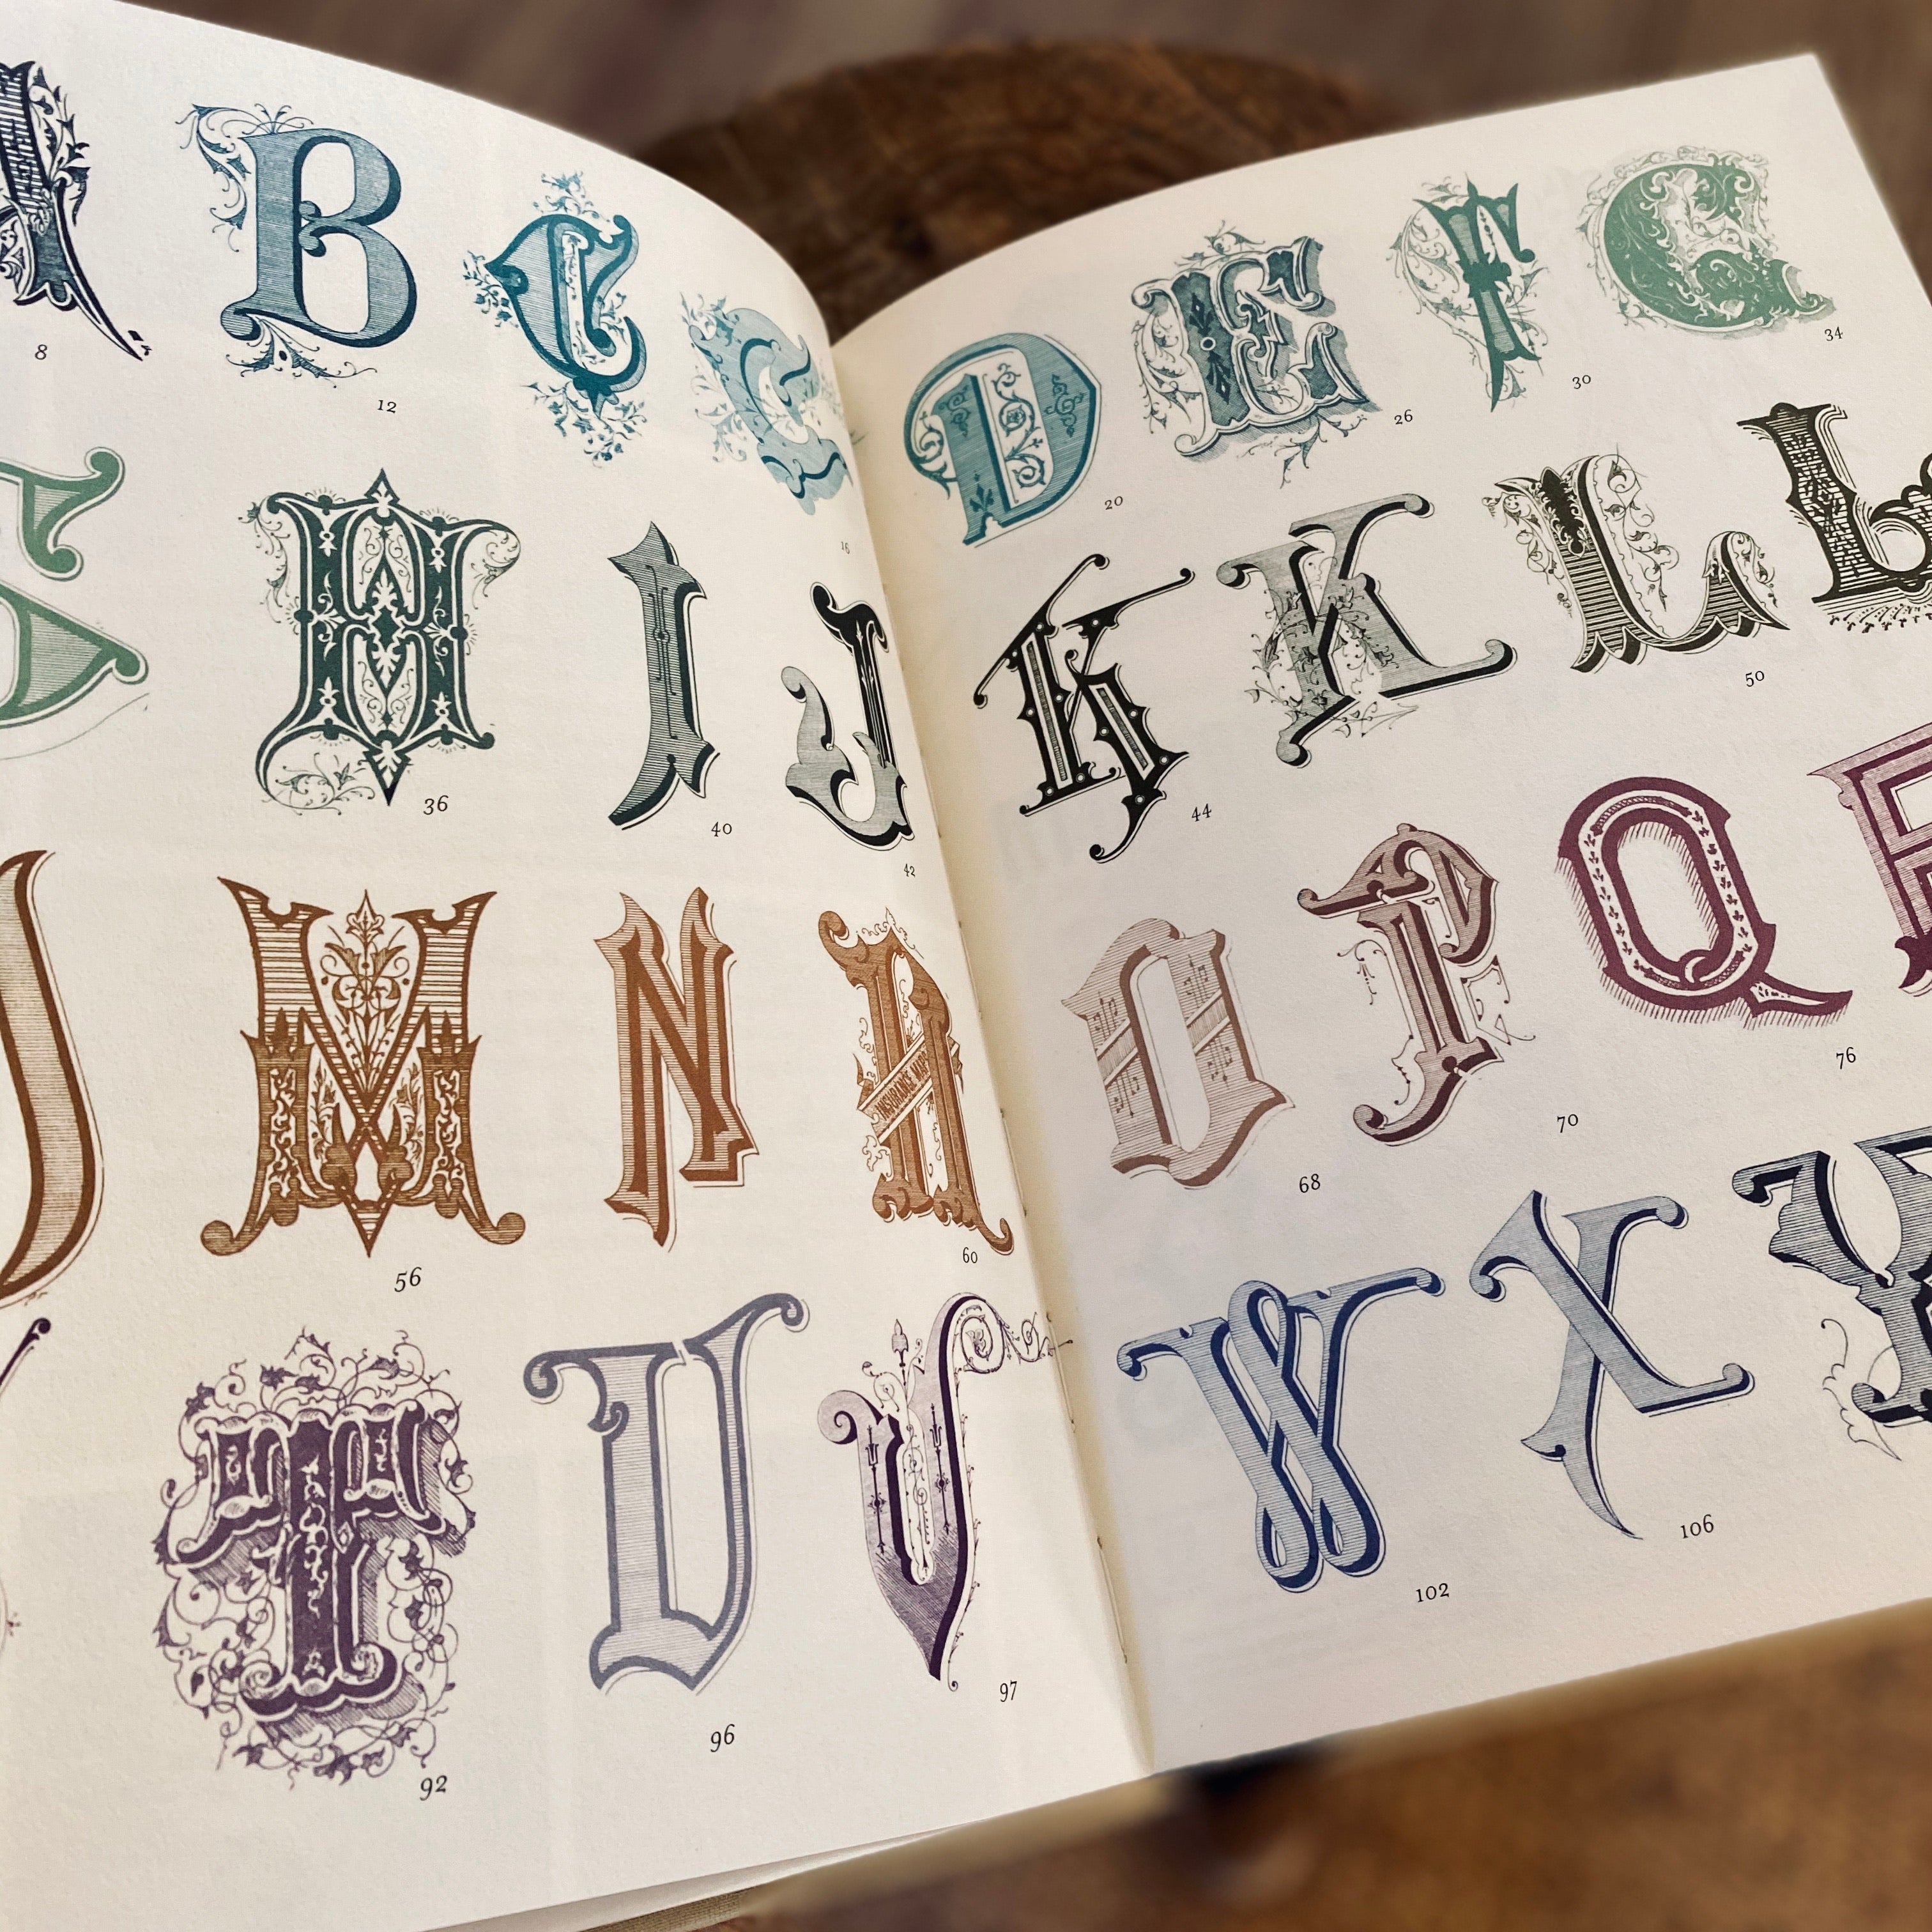 B C C
8 12 16
G H I J
36 40 42
M N N
INSURANCE MAPS
56 60
T U V
92 96 97
D E F G
20 26 30 34
K K L L
44 50
O P Q R
68 70 76
W X Y
102 106